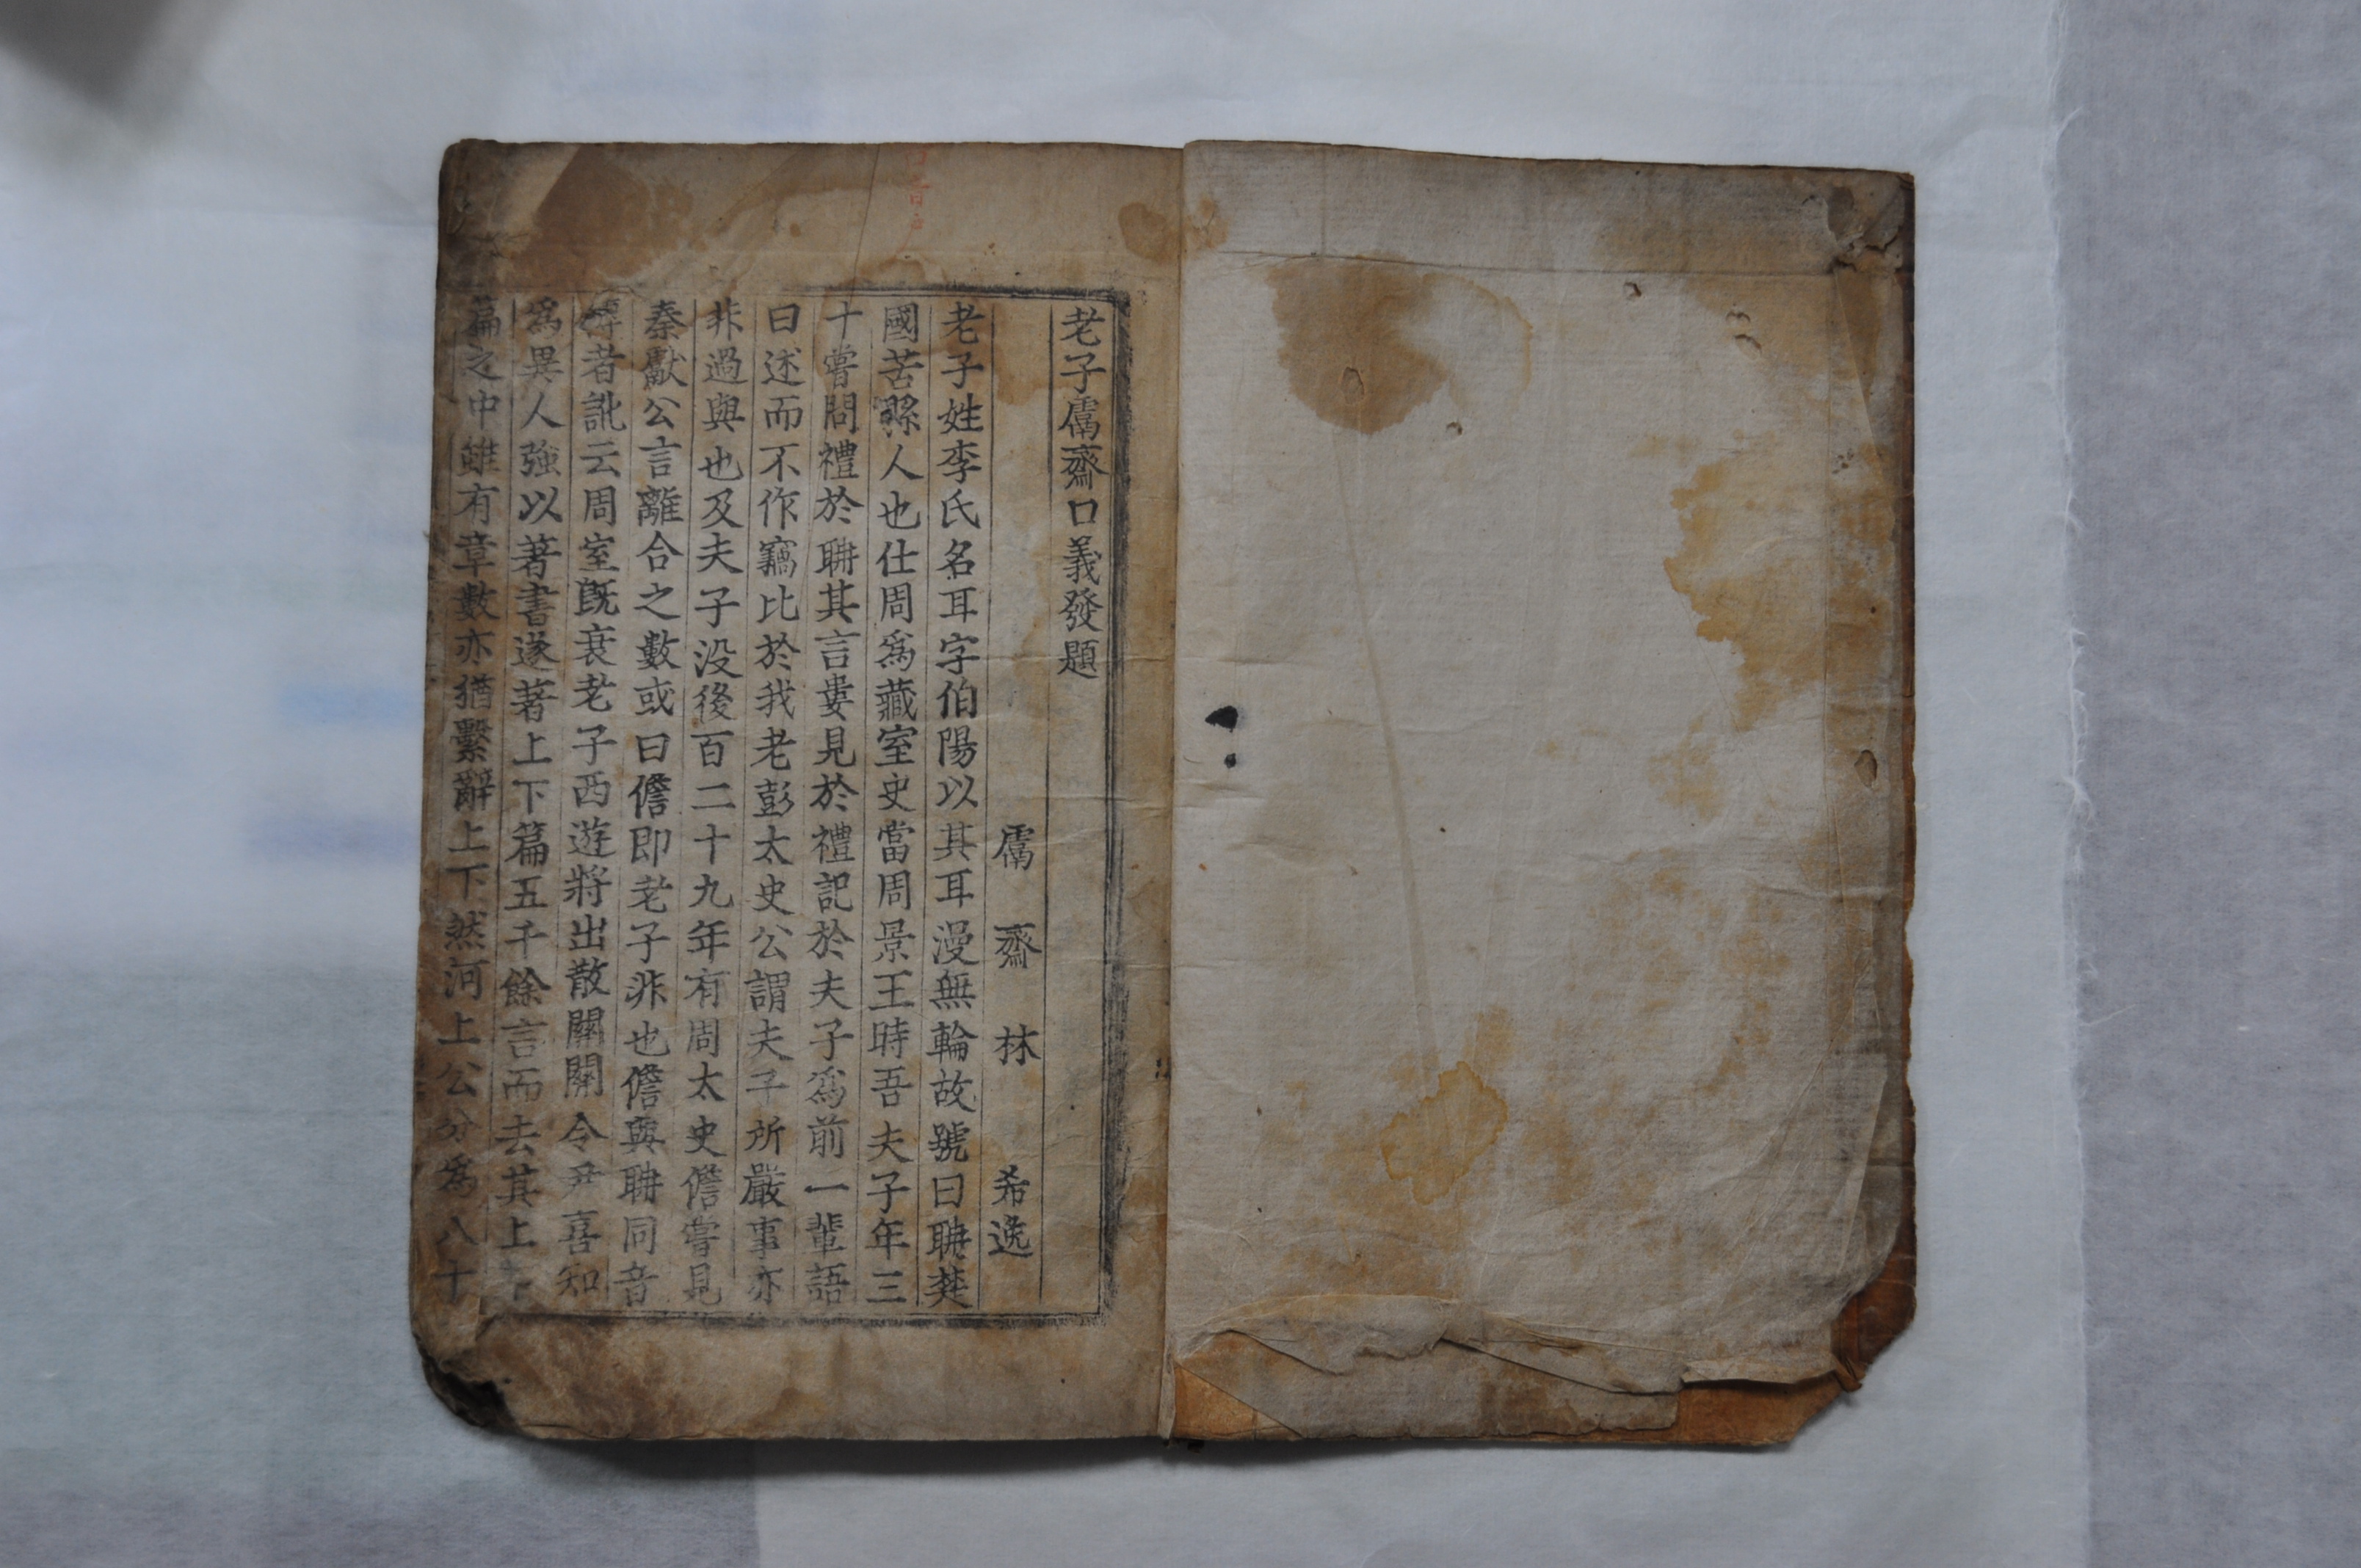 老子鬳齋口義發題
鬳齋林希逸
老子姓李氏名耳字伯陽以其耳漫無輪故號曰聃楚
國苦縣人也仕周爲藏室史當周景王時吾夫子年三
十嘗問禮於聃其言屢見於禮記於夫子爲前一輩語
曰述而不作竊比於我老彭太史公謂夫子所嚴事亦
非過與也及夫子没後百二十九年有周太史儋嘗見
秦獻公言離合之數或曰儋即老子非也儋與聃同音
傳者訛云周室旣衰老子西遊將出散關關令尹喜知
爲異人強以著書遂著上下篇五千餘言而去其上下
篇之中雖有章數亦猶繫辭上下然河上公分爲八十